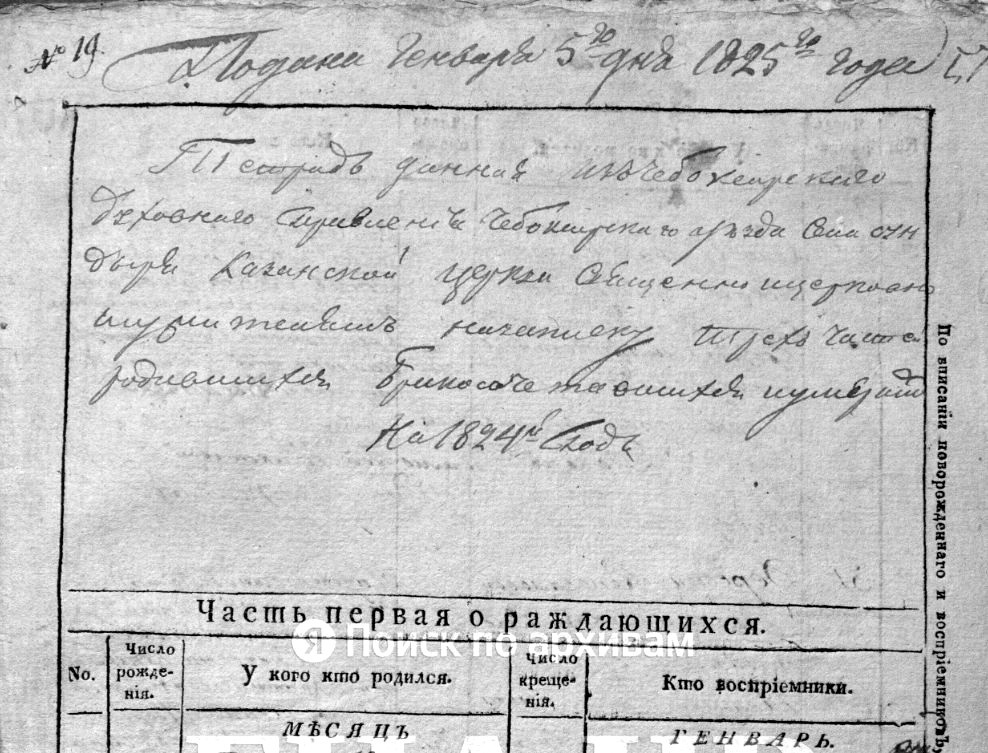 № 19. Подана Генваря 5го дня 1825го года
Тетрадь данная изъ Чебоксарскаго
духовнаго Правления Чебоксарскаго уезда Села сун
дыря Казанской церкви Священно ицерковно
служителямъ на записку трехъ частей
родившихся Бракосочетавшихся иумерших
На 1824й Годъ
По вписанiи новорожденнаго и воспрiемниковъ
Часть первая о раждающихся.
Поиск по архивам
No.
Число рожде-
нiя.
У кого кто родился.
Число
креще-
нiя.
Кто воспрiемники.
МѢСЯЦЪ
ГЕНВАРЬ.